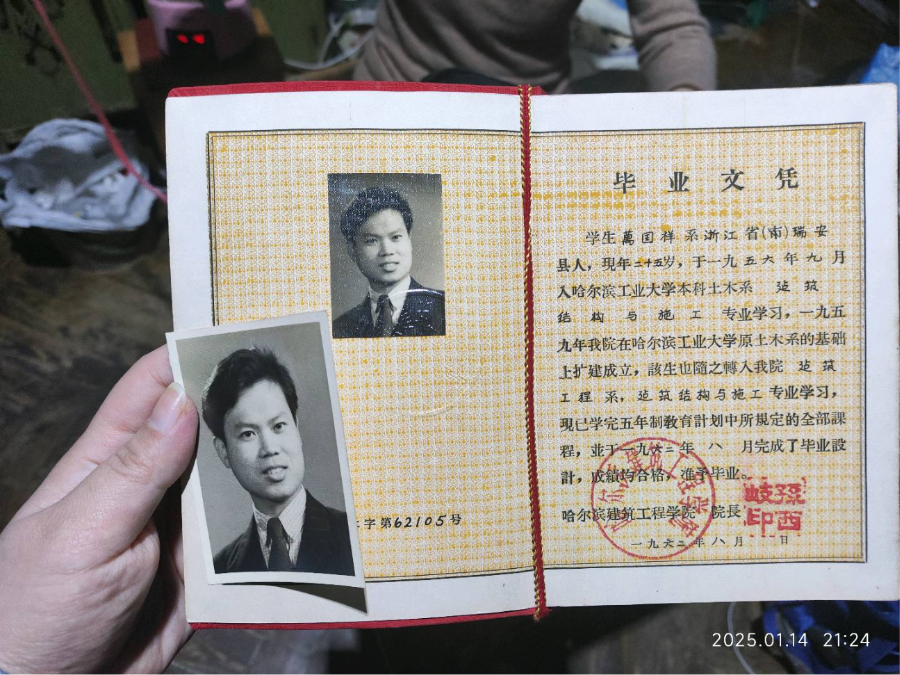 毕业文凭
学生萬国祥系浙江省(市)瑞安
县人，现年二十五岁，于一九五六年九月
入哈尔滨工业大学本科土木系 建筑
结构与施工 专业学习，一九五
九年我院在哈尔滨工业大学原土木系的基础
上扩建成立，該生也隨之轉入我院 建筑
工程系，建筑结构与施工专业学习，
現已学完五年制教育計划中所規定的全部課
程，並于一九六二年 八 月完成了毕业設
計，成績均合格，准予毕业。
哈尔滨建筑工程学院 院長
孫西岐印
一九六二年八月 日
字第62105号
2025.01.14 21:24